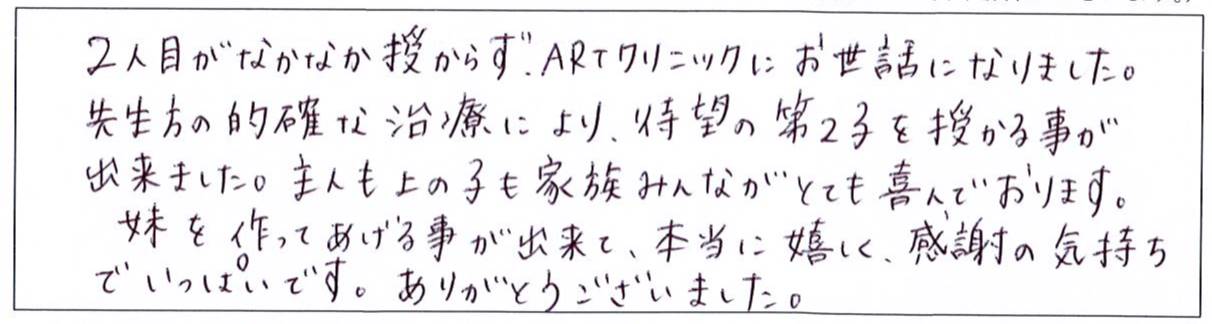 2人目がなかなか授からず、ARTクリニックにお世話になりました。
先生方の的確な治療により、待望の第2子を授かる事が
出来ました。主人も上の子も家族みんながとても喜んでおります。
妹を作ってあげる事が出来て、本当に嬉しく、感謝の気持ち
でいっぱいです。ありがとうございました。